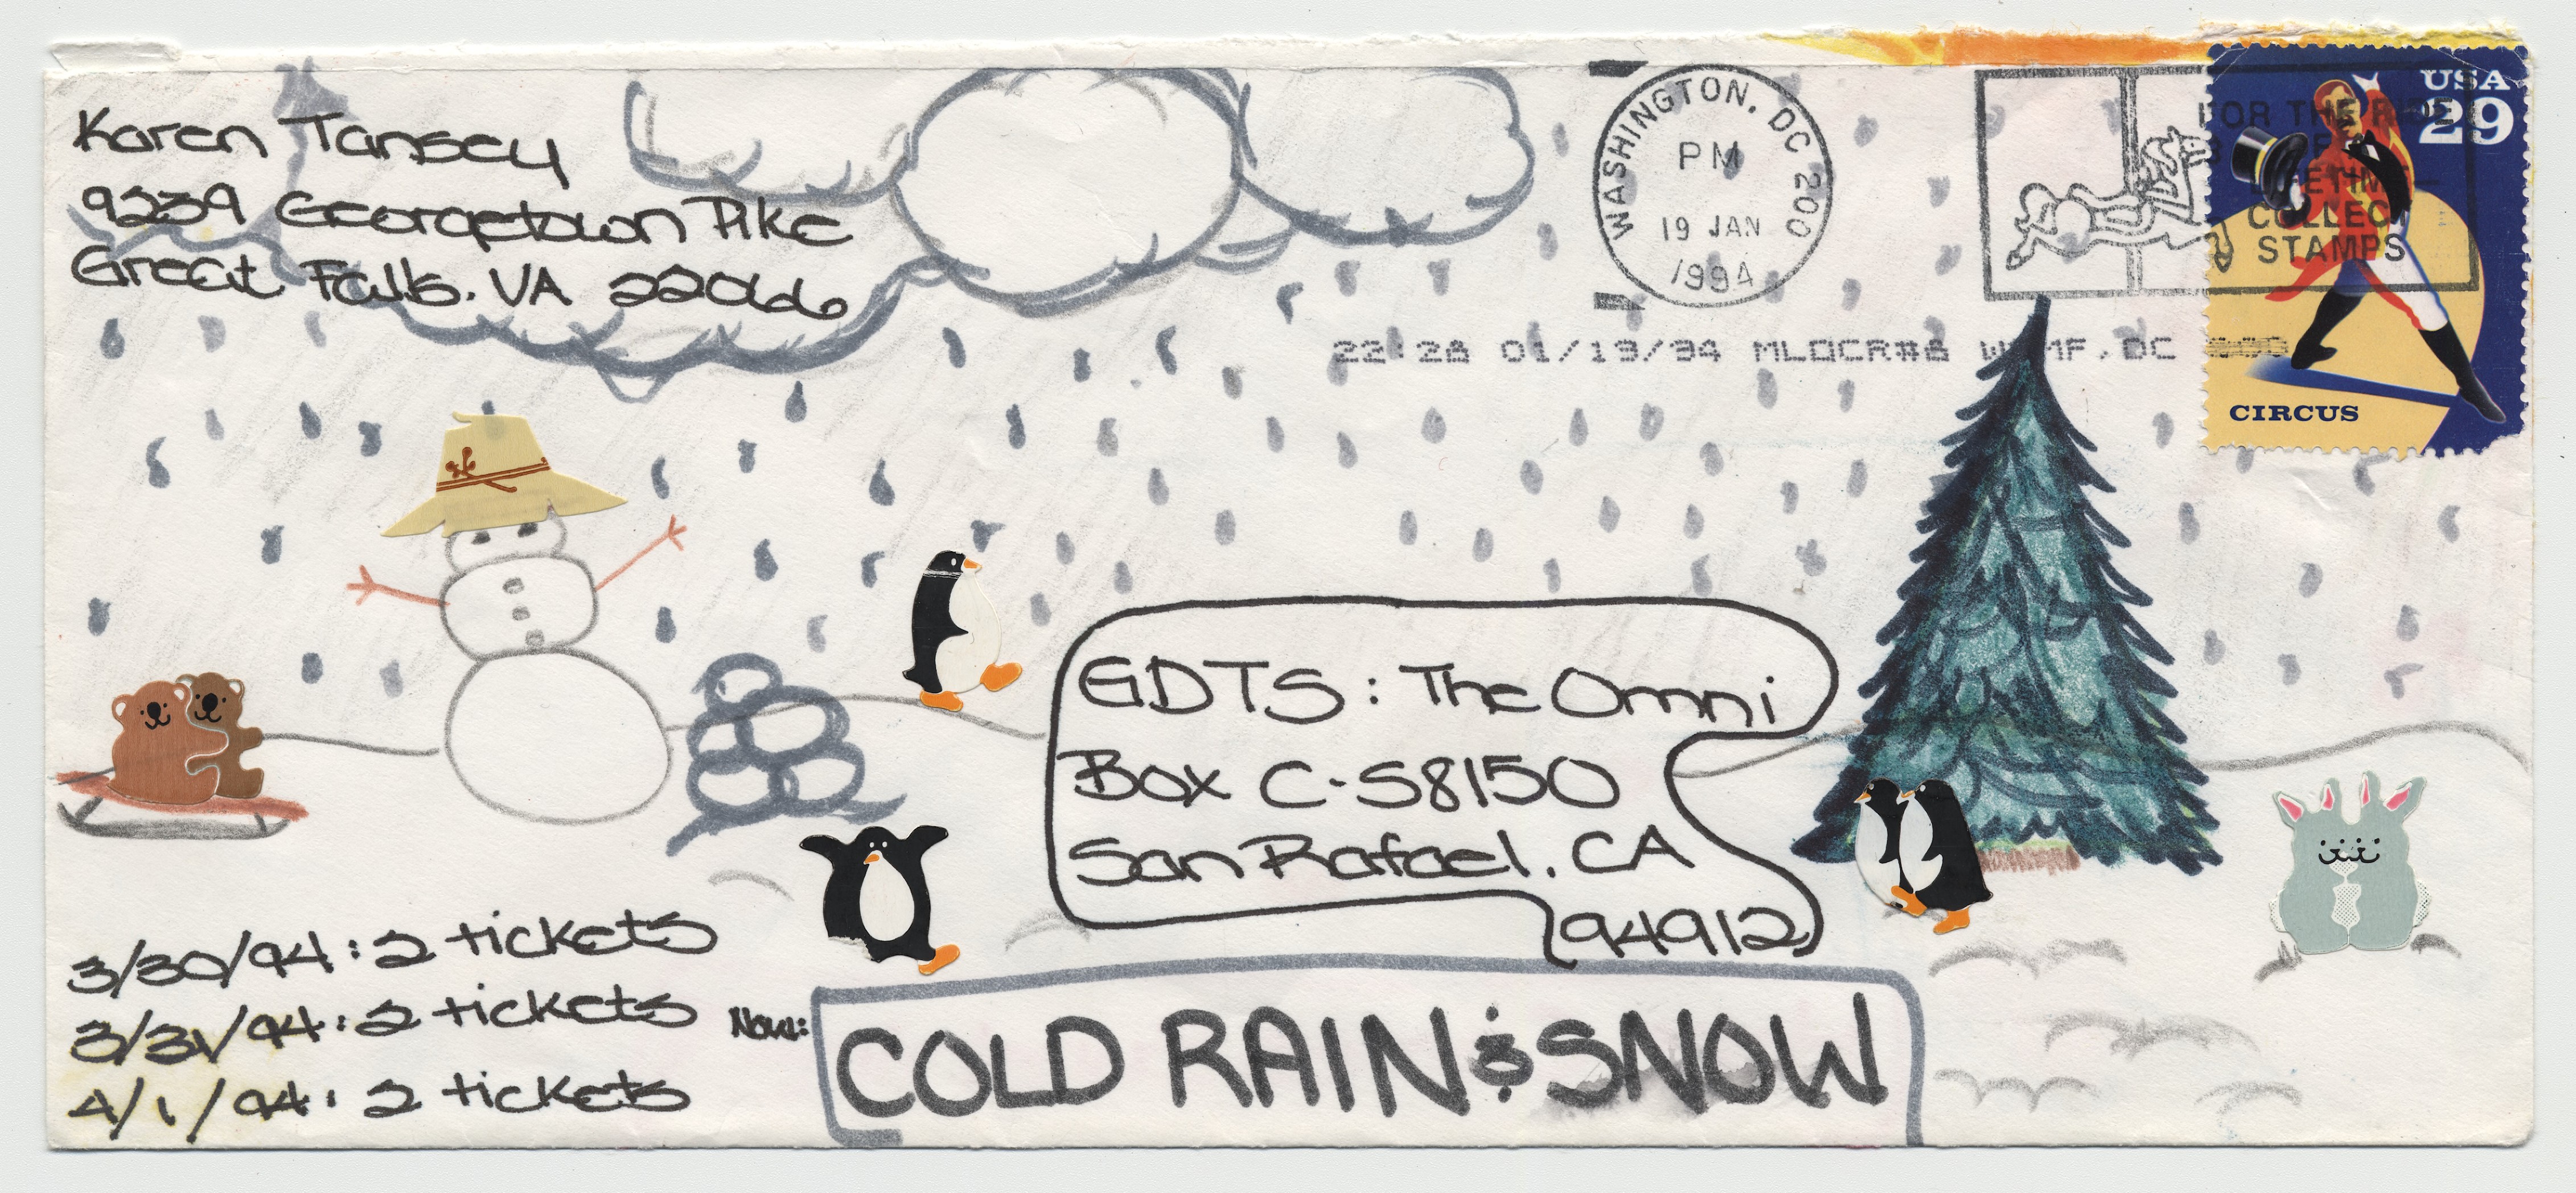 Karen Tansey
9239 Georgetown Pike
Great Falls, VA 22066
WASHINGTON, DC 200
PM
19 JAN
1994
FOR THE RIDE
COLLECT
STAMPS
USA
29
CIRCUS
01/19/94 MLOCR#8
GDTS: The Omni
Box C-S8150
San Rafael, CA
94912
3/30/94: 2 tickets
3/31/94: 2 tickets
4/1/94: 2 tickets
Now:
COLD RAIN & SNOW